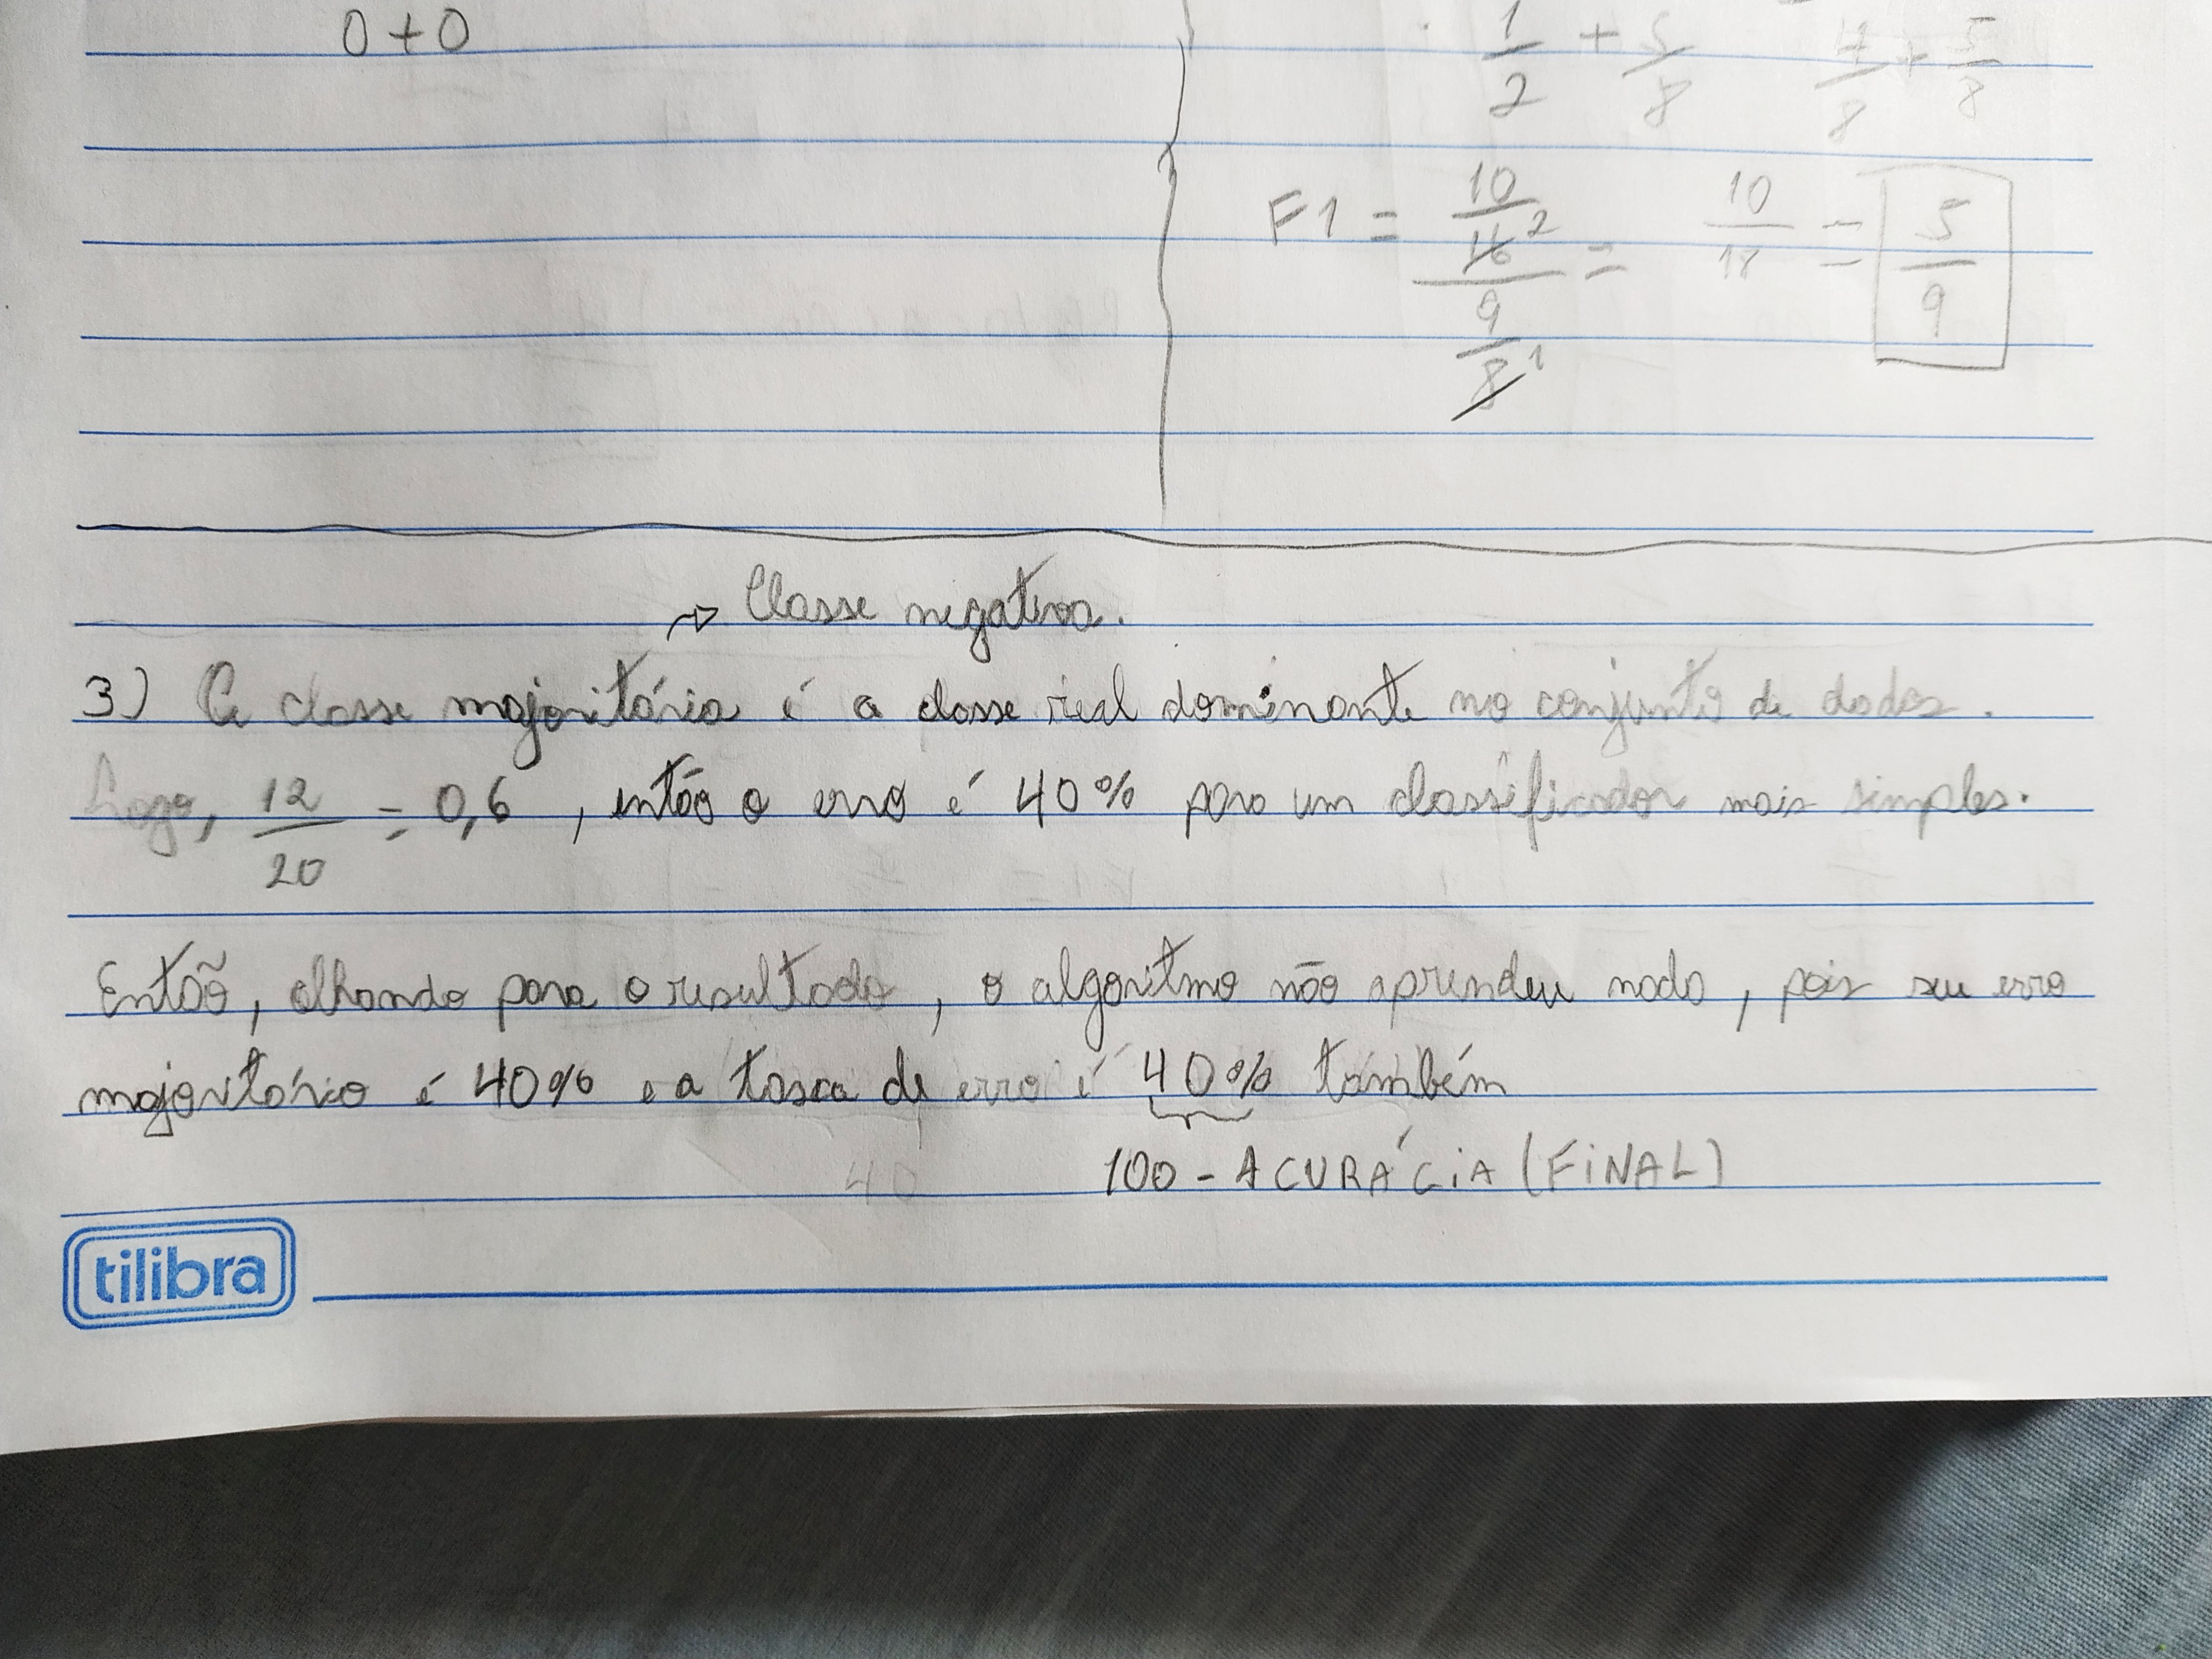 0+0
1/2 + 5/8 4/8 + 5/8
F1 = 10/16 2 / 9/8 1 = 10/18 = 5/9
→ Classe negativa.
3) A classe majoritária é a classe real dominante no conjunto de dados.
Logo, 12/20 = 0,6 , então o erro é 40% para um classificador mais simples.
Então, olhando para o resultado, o algoritmo não aprendeu nada, pois seu erro
majoritário é 40% e a taxa de erro é 40% também
100 - ACURÁCIA (FINAL)
40
tilibra